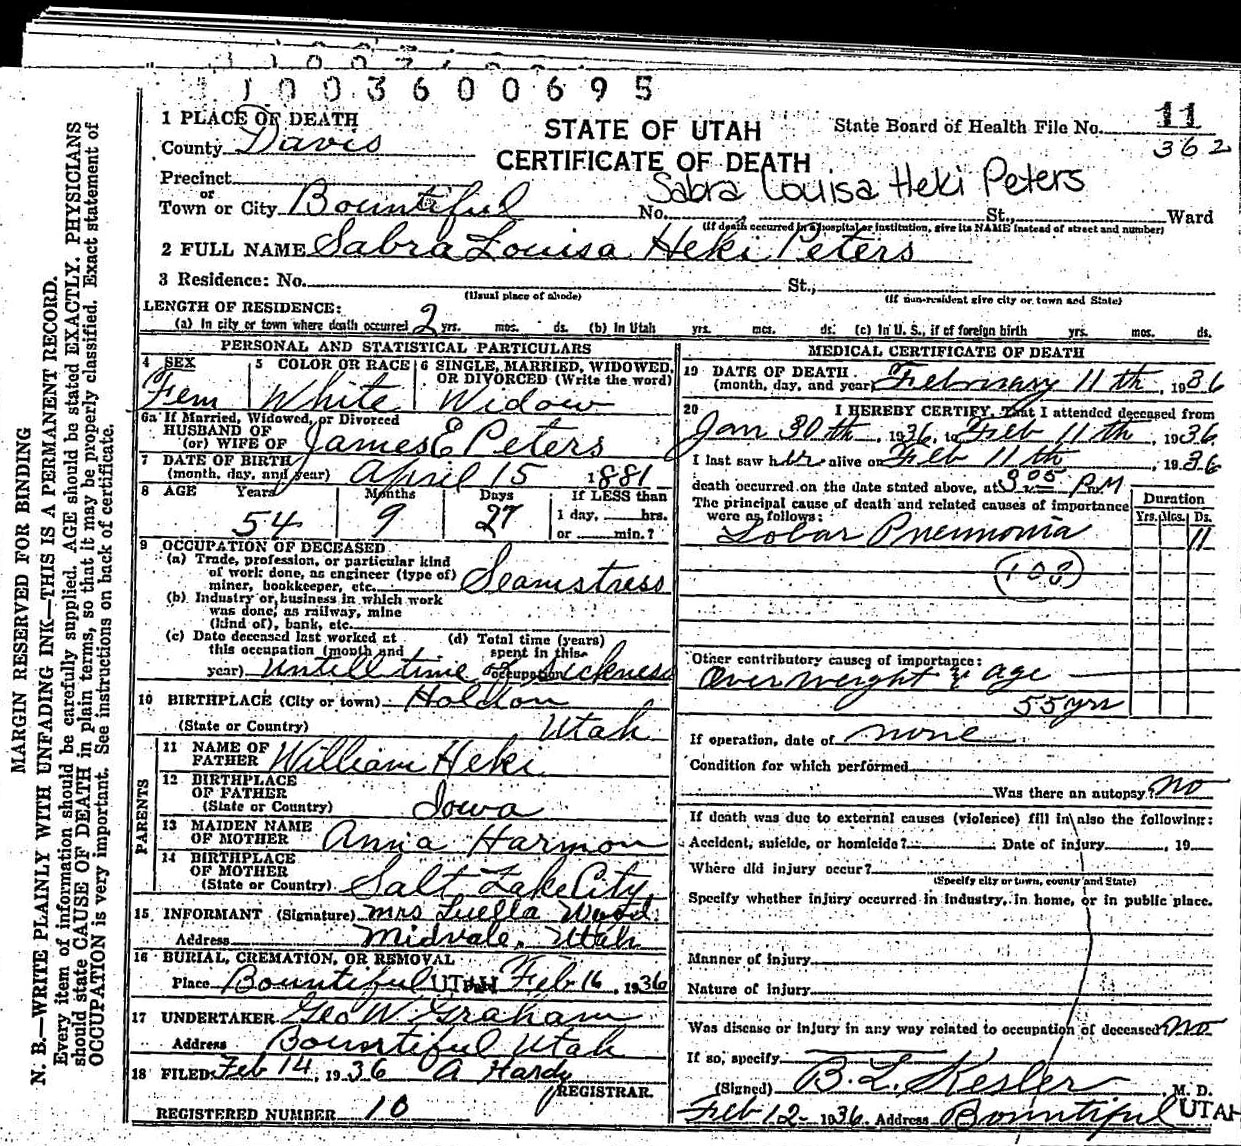 1003600695
1 PLACE OF DEATH
County Davis
STATE OF UTAH
CERTIFICATE OF DEATH
State Board of Health File No. 11
362
Precinct
or
Town or City Bountiful
Sabra Louisa Heki Peters
No. St., Ward
(If death occurred in a hospital or institution, give its NAME instead of street and number)
2 FULL NAME Sabra Louisa Heki Peters
3 Residence: No. St.,
(Usual place of abode) (If non-resident give city or town and State)
LENGTH OF RESIDENCE:
(a) In city or town where death occurred 2 yrs. mos. ds. (b) In Utah yrs. mos. ds. (c) In U. S., if of foreign birth yrs. mos. ds.
PERSONAL AND STATISTICAL PARTICULARS
4 SEX
Fem
5 COLOR OR RACE
White
6 SINGLE, MARRIED, WIDOWED, OR DIVORCED (Write the word)
Widow
6a If Married, Widowed, or Divorced
HUSBAND OF
(or) WIFE OF James E Peters
7 DATE OF BIRTH
(month, day, and year) April 15 1881
8 AGE Years Months Days If LESS than
54 9 27 1 day, hrs.
or min.?
9 OCCUPATION OF DECEASED
(a) Trade, profession, or particular kind
of work done, as engineer (type of)
miner, bookkeeper, etc. Seamstress
(b) Industry or business in which work
was done, as railway, mine
(kind of), bank, etc.
(c) Date deceased last worked at (d) Total time (years)
this occupation (month and spent in this
year) untill time of sickness occupation
10 BIRTHPLACE (City or town) Holdon
(State or Country) Utah
PARENTS
11 NAME OF
FATHER William Heki
12 BIRTHPLACE
OF FATHER
(State or Country) Iowa
13 MAIDEN NAME
OF MOTHER Anna Harmon
14 BIRTHPLACE
OF MOTHER
(State or Country) Salt Lake City
15 INFORMANT (Signature) Mrs Luella Wood
Address Midvale, Utah
16 BURIAL, CREMATION, OR REMOVAL
Place Bountiful UTAH Feb 16, 1936
17 UNDERTAKER Geo W Graham
Address Bountiful Utah
18 FILED Feb 14, 1936 A Hardy
REGISTRAR.
REGISTERED NUMBER 10
MEDICAL CERTIFICATE OF DEATH
19 DATE OF DEATH
(month, day, and year) February 11th, 1936
20 I HEREBY CERTIFY, That I attended deceased from
Jan 30th, 1936, to Feb 11th, 1936
I last saw her alive on Feb 11th, 1936
death occurred on the date stated above, at 3 05 P.M
The principal cause of death and related causes of importance
were as follows:
Duration
Yrs. Mos. Ds.
Lobar Pneumonia 11
108
Other contributory causes of importance:
Over weight & age
55 yrs
If operation, date of none
Condition for which performed
Was there an autopsy? no
If death was due to external causes (violence) fill in also the following:
Accident, suicide, or homicide? Date of injury , 19
Where did injury occur?
(Specify city or town, county and State)
Specify whether injury occurred in industry, in home, or in public place.
Manner of injury
Nature of injury
Was disease or injury in any way related to occupation of deceased? no
If so, specify
(Signed) B. L. Kesler, M. D.
Feb 12 1936 Address Bountiful UTAH
MARGIN RESERVED FOR BINDING
N. B.—WRITE PLAINLY WITH UNFADING INK—THIS IS A PERMANENT RECORD.
Every item of information should be carefully supplied. AGE should be stated EXACTLY. PHYSICIANS
should state CAUSE OF DEATH in plain terms, so that it may be properly classified. Exact statement of
OCCUPATION is very important. See instructions on back of certificate.